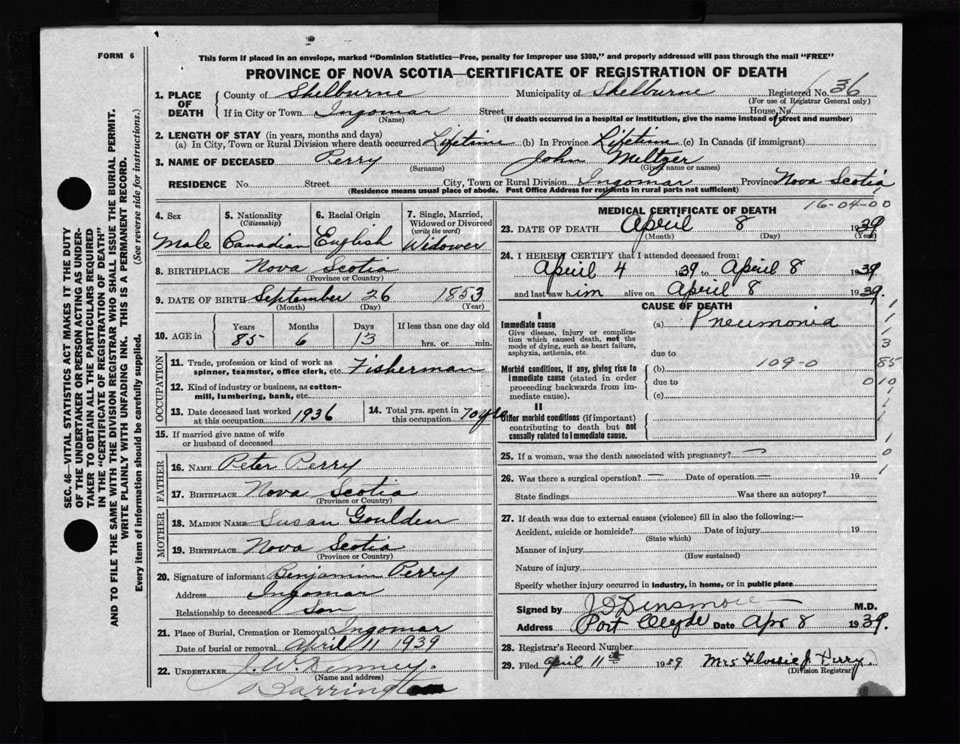 FORM 6
This form if placed in an envelope, marked "Dominion Statistics—Free, penalty for improper use $300," and properly addressed will pass through the mail "FREE"
PROVINCE OF NOVA SCOTIA—CERTIFICATE OF REGISTRATION OF DEATH
SEC. 46—VITAL STATISTICS ACT MAKES IT THE DUTY
OF THE UNDERTAKER OR PERSON ACTING AS UNDER-
TAKER TO OBTAIN ALL THE PARTICULARS REQUIRED
IN THE "CERTIFICATE OF REGISTRATION OF DEATH"
AND TO FILE THE SAME WITH THE DIVISION REGISTRAR WHO SHALL ISSUE THE BURIAL PERMIT.
WRITE PLAINLY WITH UNFADING INK. THIS IS A PERMANENT RECORD.
Every item of information should be carefully supplied. (See reverse side for instructions.)
1. PLACE OF DEATH County of Shelburne Municipality of Shelburne Registered No. 36
(For use of Registrar General only)
If in City or Town Ingomar Street House No.
(Name) (If death occurred in a hospital or institution, give the name instead of street and number)
2. LENGTH OF STAY (in years, months and days)
(a) In City, Town or Rural Division where death occurred Lifetime (b) In Province Lifetime (c) In Canada (if immigrant)
3. NAME OF DECEASED Perry John Meltzer
(Surname) (Given name or names)
RESIDENCE No. Street City, Town or Rural Division Ingomar Province Nova Scotia
(Residence means usual place of abode. Post Office Address for residents in rural parts not sufficient)
16-04-00
4. Sex Male
5. Nationality (Citizenship) Canadian
6. Racial Origin English
7. Single, Married, Widowed or Divorced (write the word) Widower
8. BIRTHPLACE Nova Scotia
(Province or Country)
9. DATE OF BIRTH September 26 1853
(Month) (Day) (Year)
10. AGE in Years 85 Months 6 Days 13 If less than one day old
hrs. or min.
OCCUPATION
11. Trade, profession or kind of work as
spinner, teamster, office clerk, etc. Fisherman
12. Kind of industry or business, as cotton-
mill, lumbering, bank, etc.
13. Date deceased last worked
at this occupation 1936
14. Total yrs. spent in
this occupation 70 yrs
15. If married give name of wife
or husband of deceased
FATHER
16. NAME Peter Perry
17. BIRTHPLACE Nova Scotia
(Province or Country)
MOTHER
18. MAIDEN NAME Susan Goulden
19. BIRTHPLACE Nova Scotia
(Province or Country)
20. Signature of informant Benjamin Perry
Address Ingomar
Relationship to deceased Son
21. Place of Burial, Cremation or Removal Ingomar
Date of burial or removal April 11 1939
22. UNDERTAKER J. W. Kenney.
(Name and address)
Barrington
MEDICAL CERTIFICATE OF DEATH
23. DATE OF DEATH April 8 1939
(Month) (Day) (Year)
24. I HEREBY CERTIFY that I attended deceased from:
April 4 139 to April 8 1939
and last saw him alive on April 8 1939.
CAUSE OF DEATH
I
Immediate cause
Give disease, injury or complica-
tion which caused death, not the
mode of dying, such as heart failure,
asphyxia, asthenia, etc.
(a) Pneumonia
due to
Morbid conditions, if any, giving rise to
immediate cause (stated in order
proceeding backwards from im-
mediate cause).
(b) 109-0
due to
(c)
II
Other morbid conditions (if important)
contributing to death but not
causally related to immediate cause.
1
1
3
85
010
1
1
1
0
1
25. If a woman, was the death associated with pregnancy? —
26. Was there a surgical operation? — Date of operation — 19
State findings Was there an autopsy?
27. If death was due to external causes (violence) fill in also the following:—
Accident, suicide or homicide? Date of injury 19
(State which)
Manner of injury
(How sustained)
Nature of injury
Specify whether injury occurred in industry, in home, or in public place
Signed by J D Densmore M.D.
Address Port Clyde Date Apr 8 1939.
28. Registrar's Record Number
29. Filed April 11th 1939 Mrs Flossie J. Perry.
(Division Registrar)